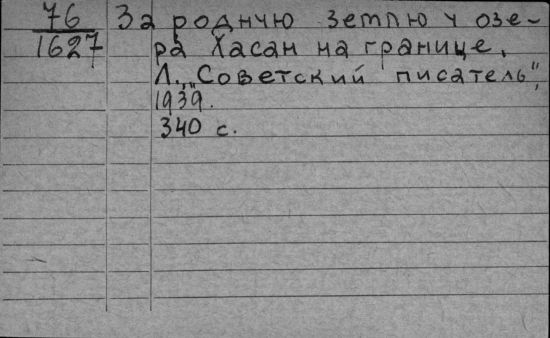 76 За родную землю у озе-
1627 ра Хасан на границе.
Л., „Советский писатель",
1939.
340 с.